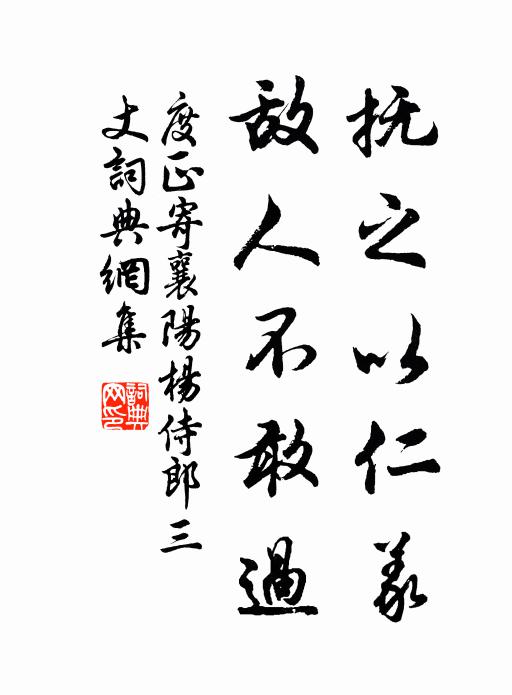 抚之以仁义
敌人不敢過
度正寄襄陽楊侍郎三
丈詞典網集
詞典
网印